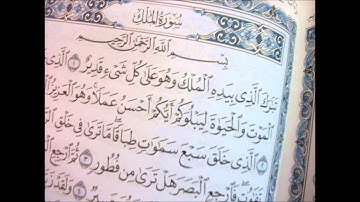 سُورَةُ الْمُلْكِ
بِسْمِ اللَّهِ الرَّحْمَٰنِ الرَّحِيمِ
تَبَٰرَكَ الَّذِي بِيَدِهِ الْمُلْكُ وَهُوَ عَلَىٰ كُلِّ شَيْءٍ قَدِيرٌ ١ الَّذِي
الْمَوْتَ وَالْحَيَوٰةَ لِيَبْلُوَكُمْ أَيُّكُمْ أَحْسَنُ عَمَلًا وَهُوَ الْعَزِيزُ
الَّذِي خَلَقَ سَبْعَ سَمَٰوَٰتٍ طِبَاقًا مَّا تَرَىٰ فِي خَلْقِ
تَفَٰوُتٍ فَارْجِعِ الْبَصَرَ هَلْ تَرَىٰ مِن فُطُورٍ ٣ ثُمَّ ارْجِعِ
وَلَقَدْ